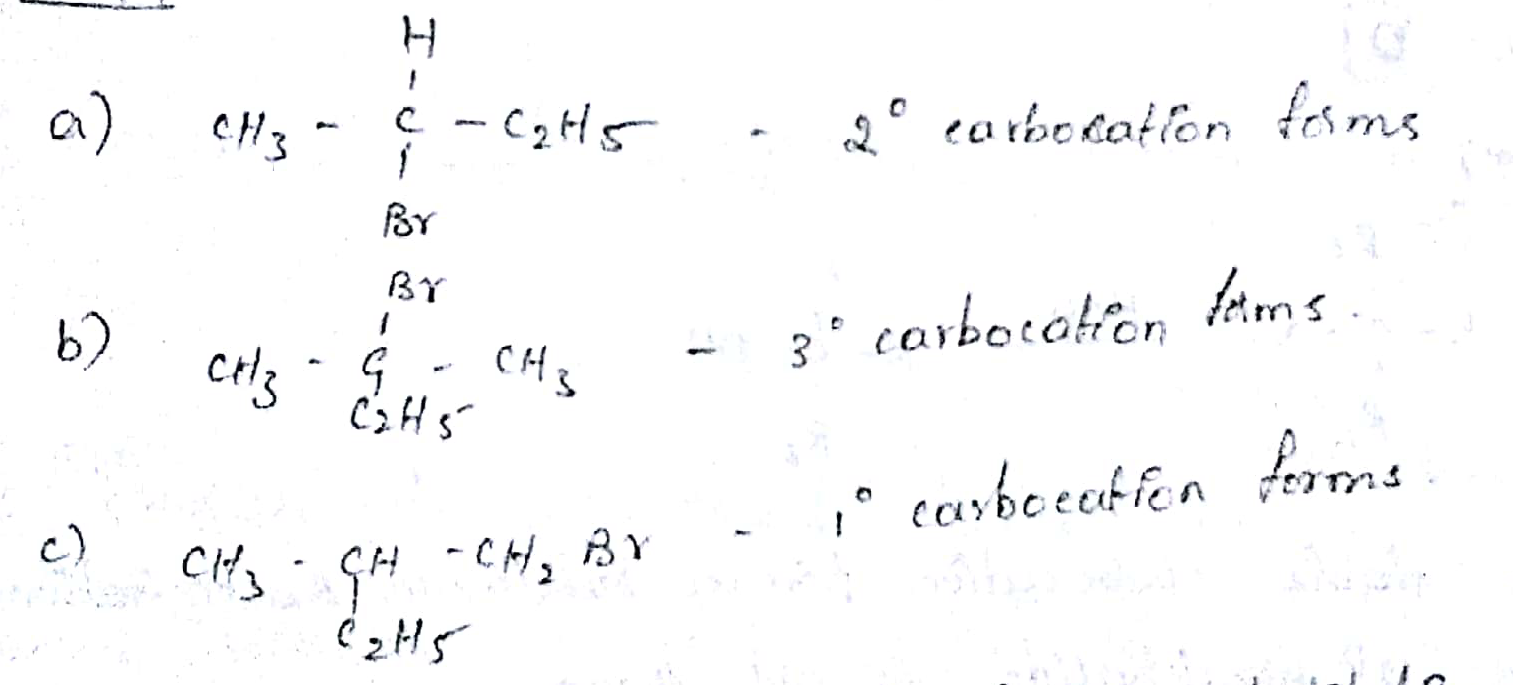 H
a) CH3 - C - C2H5 - 2° carbocation forms
Br
Br
b) CH3 - C - CH3 - 3° carbocation forms.
C2H5
c) CH3 - CH - CH2 Br - 1° carbocation forms.
C2H5